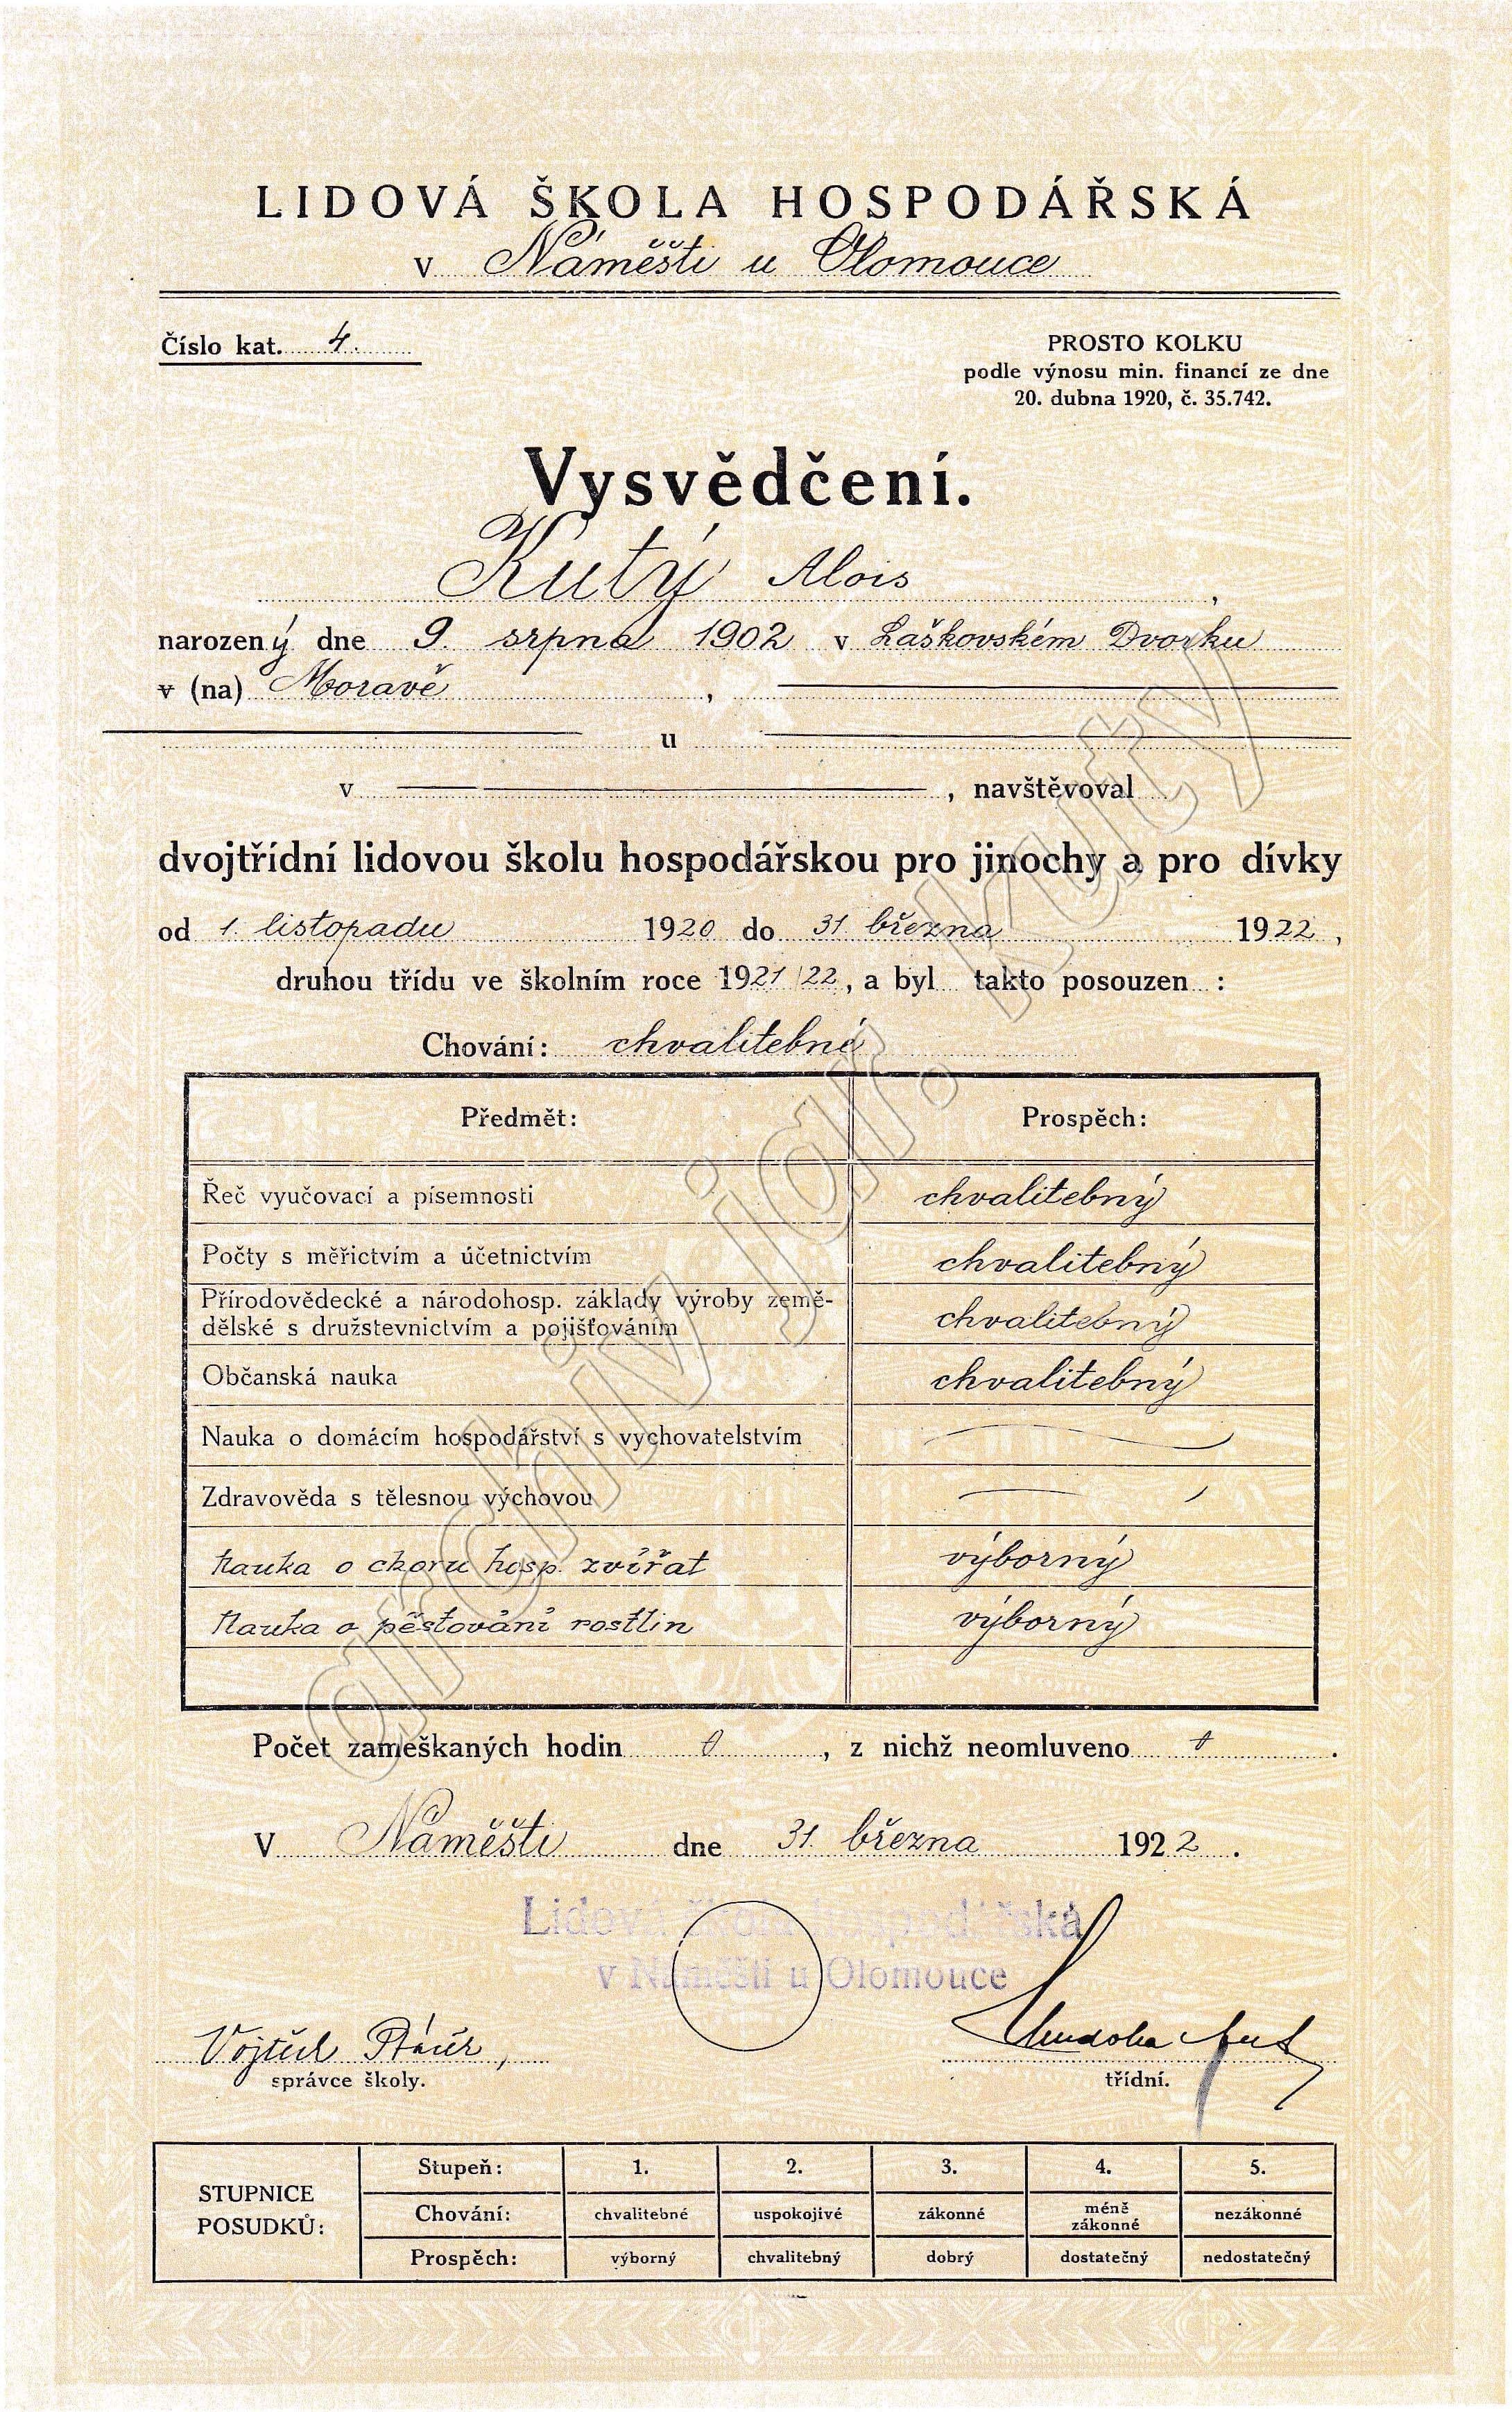 LIDOVÁ ŠKOLA HOSPODÁŘSKÁ
v Náměšti u Olomouce
Číslo kat. 4.
PROSTO KOLKU
podle výnosu min. financí ze dne
20. dubna 1920, č. 35.742.
Vysvědčení.
Kutý Alois ,
narozený dne 9. srpna 1902 v Laškovském Dvorku
v (na) Moravě ,
u
v , navštěvoval
dvojtřídní lidovou školu hospodářskou pro jinochy a pro dívky
od 1. listopadu 1920 do 31. března 1922 ,
druhou třídu ve školním roce 1921/22, a byl takto posouzen :
Chování: chvalitebné
Předmět: Prospěch:
Řeč vyučovací a písemnosti chvalitebný
Počty s měřictvím a účetnictvím chvalitebný
Přírodovědecké a národohosp. základy výroby země-
dělské s družstevnictvím a pojišťováním chvalitebný
Občanská nauka chvalitebný
Nauka o domácím hospodářství s vychovatelstvím
Zdravověda s tělesnou výchovou
Nauka o chovu hosp. zvířat výborný
Nauka o pěstování rostlin výborný
Počet zameškaných hodin 0 , z nichž neomluveno 0 .
V Náměšti dne 31. března 1922 .
Lidová škola hospodářská
v Náměšti u Olomouce
Vojtěch
správce školy. třídní.
STUPNICE POSUDKŮ:
Stupeň: 1. 2. 3. 4. 5.
Chování: chvalitebné uspokojivé zákonné méně zákonné nezákonné
Prospěch: výborný chvalitebný dobrý dostatečný nedostatečný
archiv jar. kutý